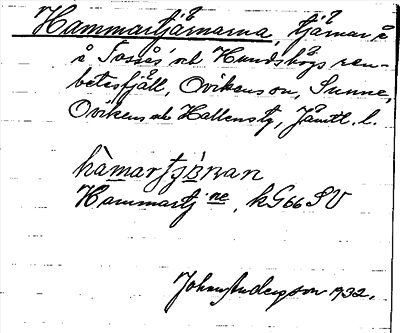 Hammartjärnarna, tjärnar å
å Tossås och Hundshögs ren-
betesfjäll, Ovikens sn, Sunne,
Ovikens och Hallens tg, Jämtl. l.
hàmar
Hammartj:ne, kG66SV
John Anderzson 1932.